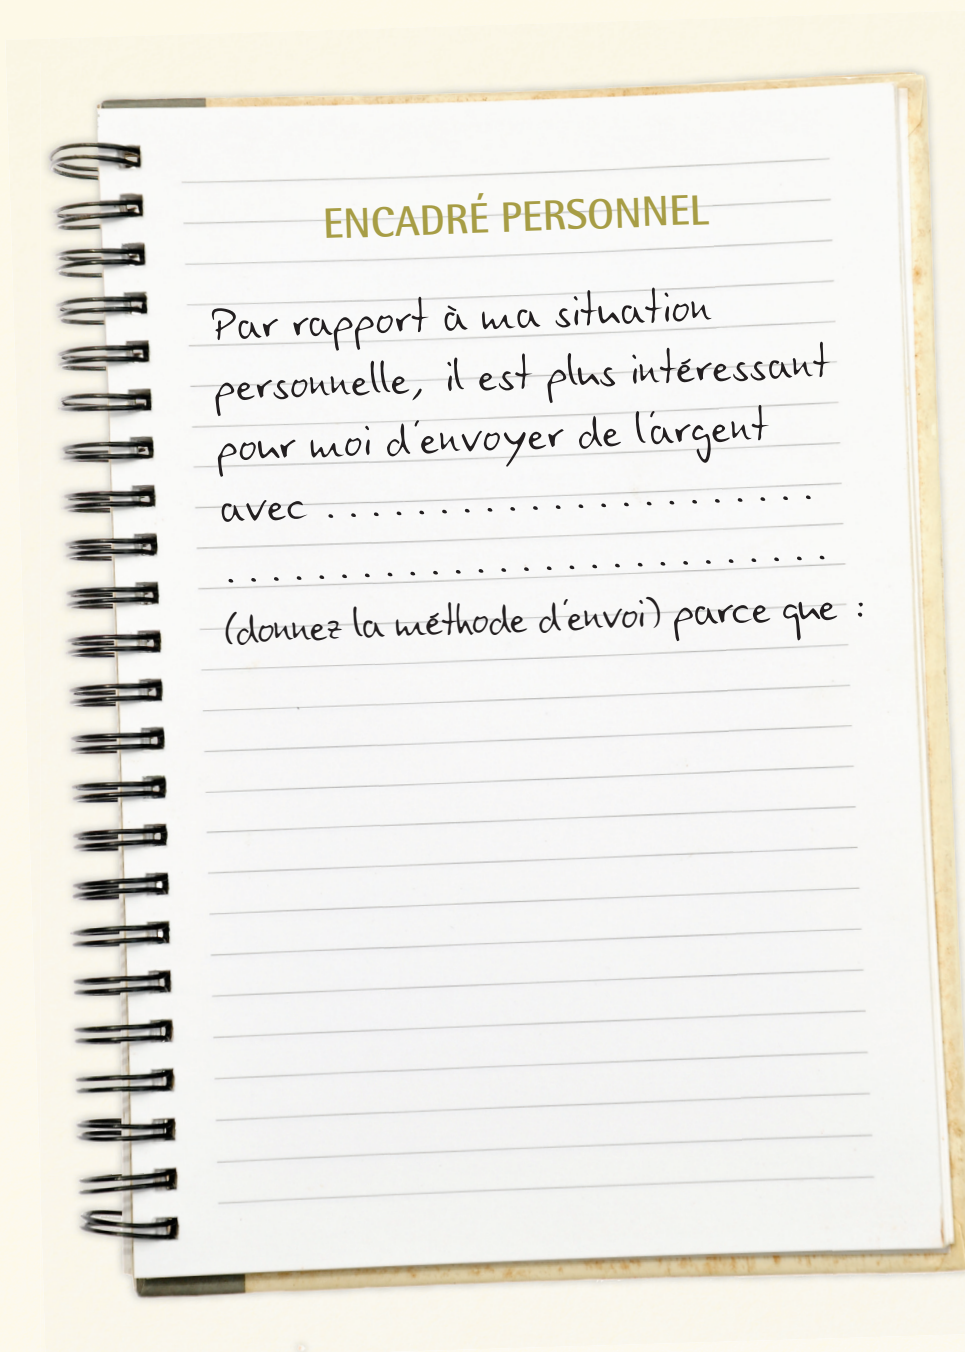 ENCADRÉ PERSONNEL
Par rapport à ma situation
personnelle, il est plus intéressant
pour moi d'envoyer de l'argent
avec ......................
...........................
(donnez la méthode d'envoi) parce que :